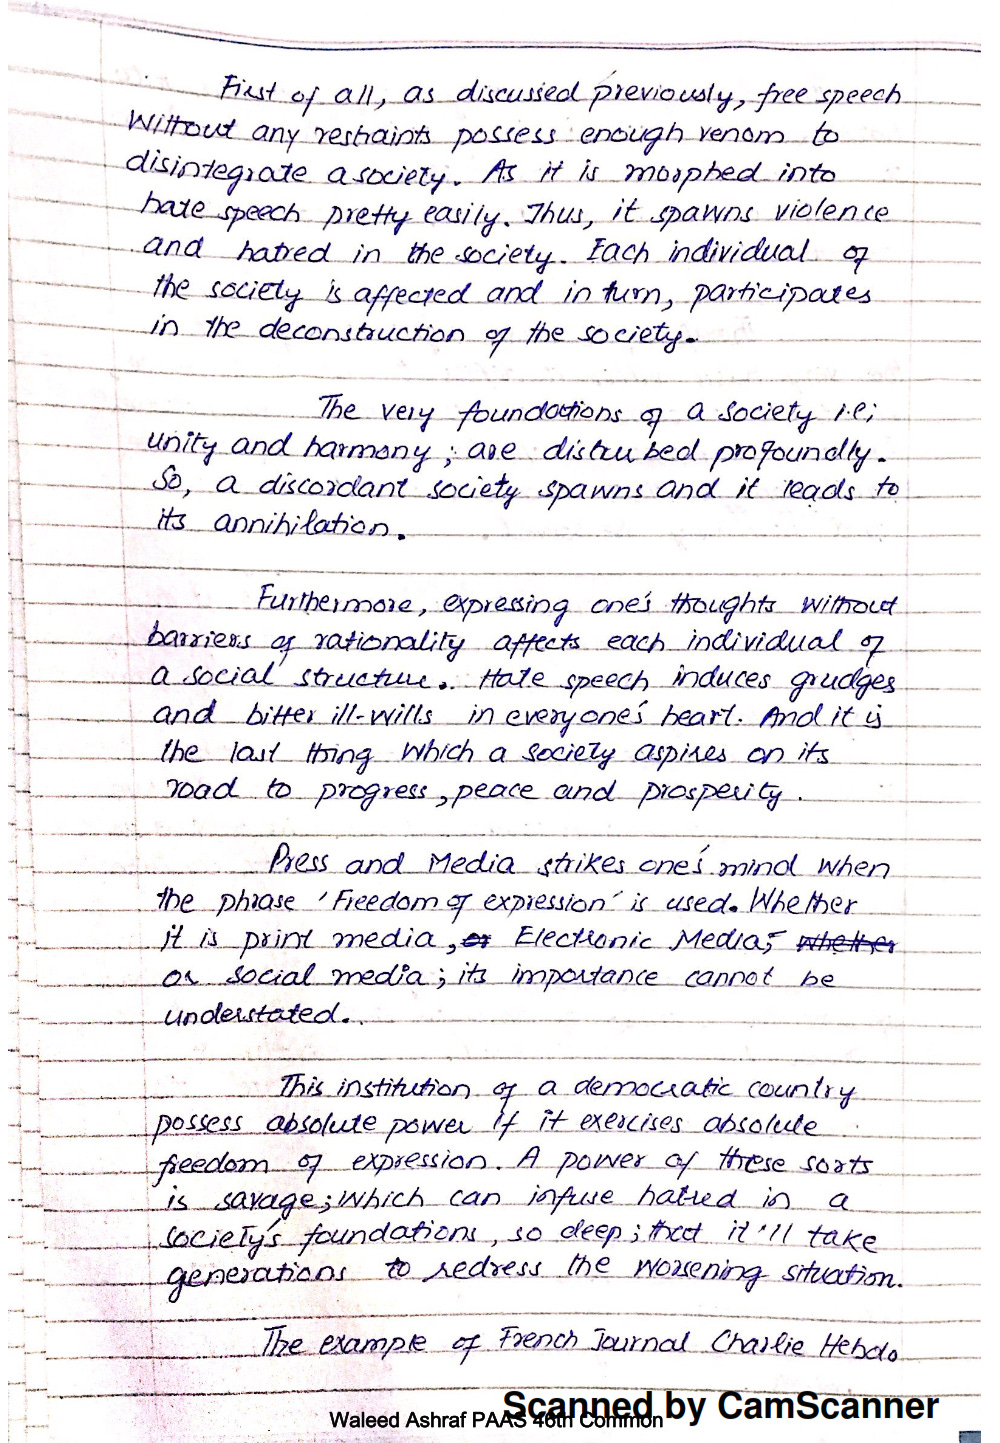 First of all, as discussed previously, free speech
Without any restraints possess enough venom to
disintegrate a society. As it is morphed into
hate speech pretty easily. Thus, it spawns violence
and hatred in the society. Each individual of
the society is affected and in turn, participates
in the deconstruction of the society.
The very foundations of a society i.e;
unity and harmony; are disturbed profoundly.
So, a discordant society spawns and it leads to
its annihilation.
Furthermore, expressing one's thoughts without
barriers of rationality affects each individual of
a social structure. Hate speech induces grudges
and bitter ill-wills in everyone's heart. And it is
the last thing which a society aspires on its
road to progress, peace and prosperity.
Press and Media strikes one's mind when
the phrase 'Freedom of expression' is used. Whether
it is print media, or Electronic Media, whether
or social media; its importance cannot be
understated.
This institution of a democratic country
possess absolute power if it exercises absolute
freedom of expression. A power of these sorts
is savage; which can infuse hatred in a
society's foundations, so deep; that it'll take
generations to redress the worsening situation.
The example of French Journal Charlie Hebdo
Scanned by CamScanner
Waleed Ashraf PAAS 46th Common